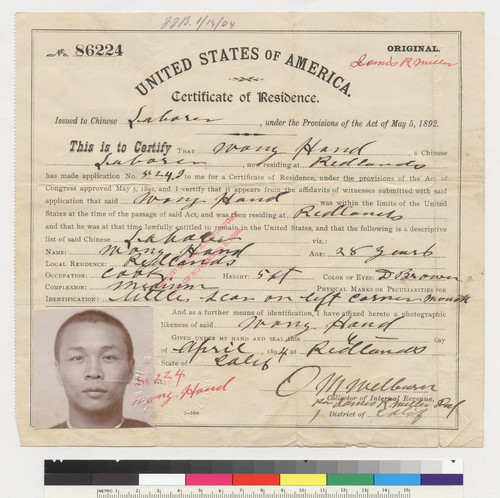 J.J.B. 1/14/04
No. 86224
ORIGINAL.
UNITED STATES OF AMERICA.
Certificate of Residence.
Issued to Chinese Laborer, under the Provisions of the Act of May 5, 1892.
This is to Certify THAT Wong Hand, a Chinese
Laborer, now residing at Redlands
has made application No. to me for a Certificate of Residence, under the provisions of the Act of
Congress approved May 5, 1892, and I certify that it appears from the affidavits of witnesses submitted with said
application that said Wong Hand was within the limits of the United
States at the time of the passage of said Act, and was then residing at Redlands
and that he was at that time lawfully entitled to remain in the United States, and that the following is a descriptive
list of said Chinese Laborer viz.:
NAME: Wong Hand AGE: 28 years
LOCAL RESIDENCE: Redlands
OCCUPATION: Cook HEIGHT: 5 ft COLOR OF EYES: D Brown
COMPLEXION: Medium PHYSICAL MARKS OR PECULIARITIES FOR
IDENTIFICATION: Little scar on left corner mouth
And as a further means of identification, I have affixed hereto a photographic
likeness of said Wong Hand
GIVEN UNDER MY HAND AND SEAL this day
of April, 1894, at Redlands
State of Calif
O M Welburn
Collector of Internal Revenue,
per James R Miller
District of Calif
Wong Hand